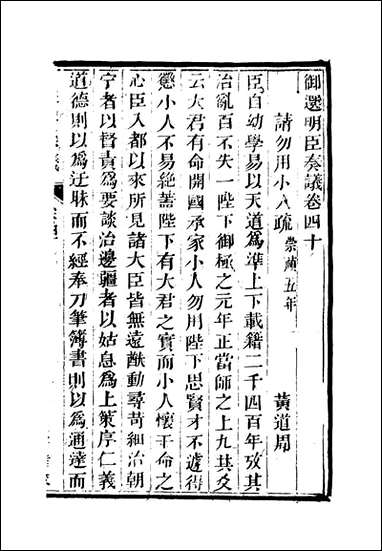 御選明臣奏議卷四十
請勿用小人疏崇禎五年
黃道周
臣自幼學易以天道為準上下載籍二千四百年攷其
治亂百不失一陛下御極之元年正當師之上九其爻
云大君有命開國承家小人勿用陛下思賢才不遽得
懲小人不易絕蓋陛下有大君之實而小人懷干命之
心臣入都以來所見諸大臣皆無遠猷動尋苛細治朝
宁者以督責為要談治邊疆者以姑息為上策序仁義
道德則以為迂昧而不經奉刀筆簿書則以為通達而